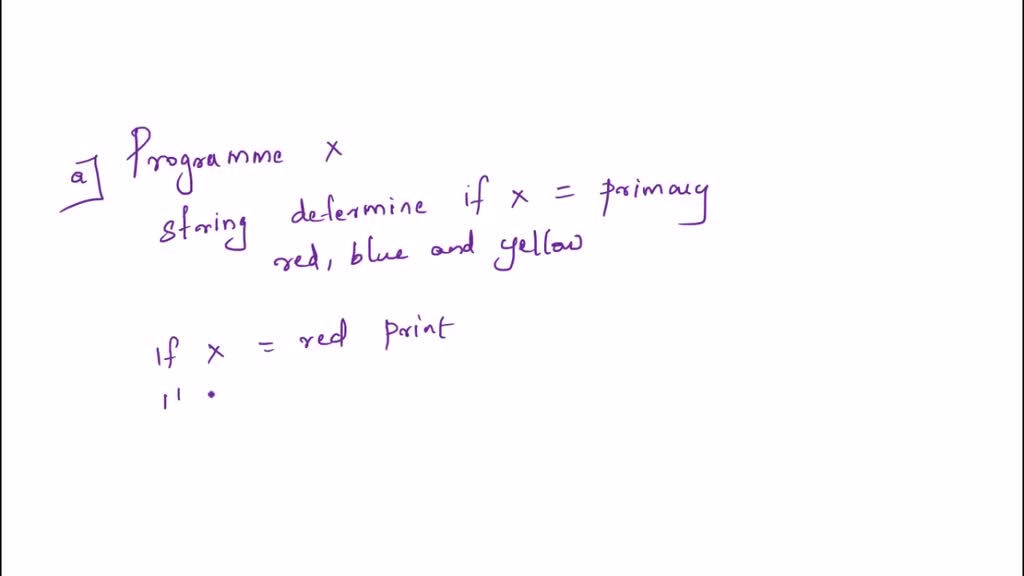 a] Programme x
string determine if x = primary
red, blue and yellow
if x = red print
"